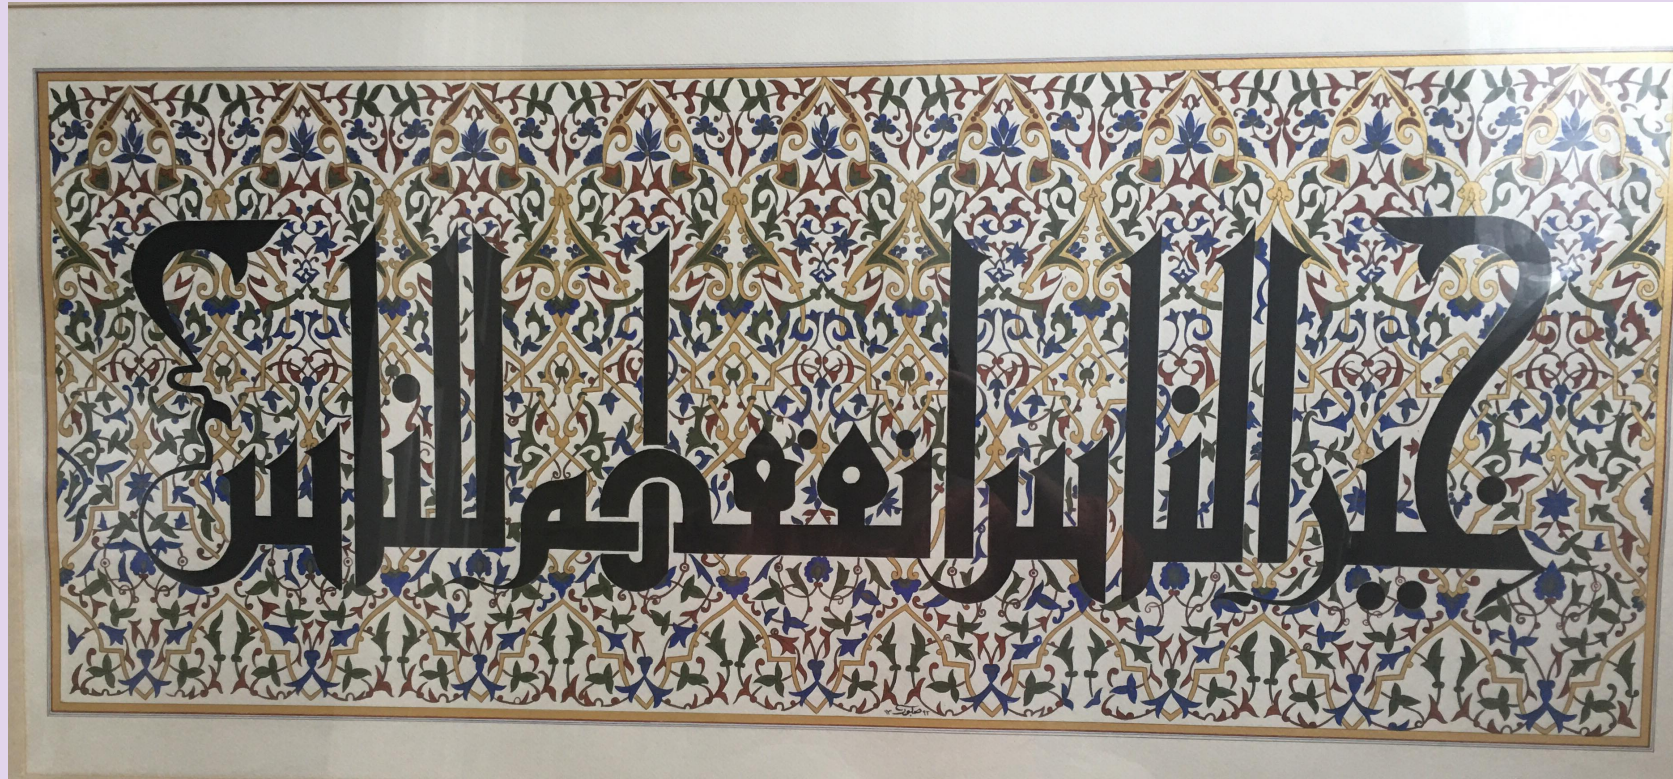 خير الناس انفعهم للناس